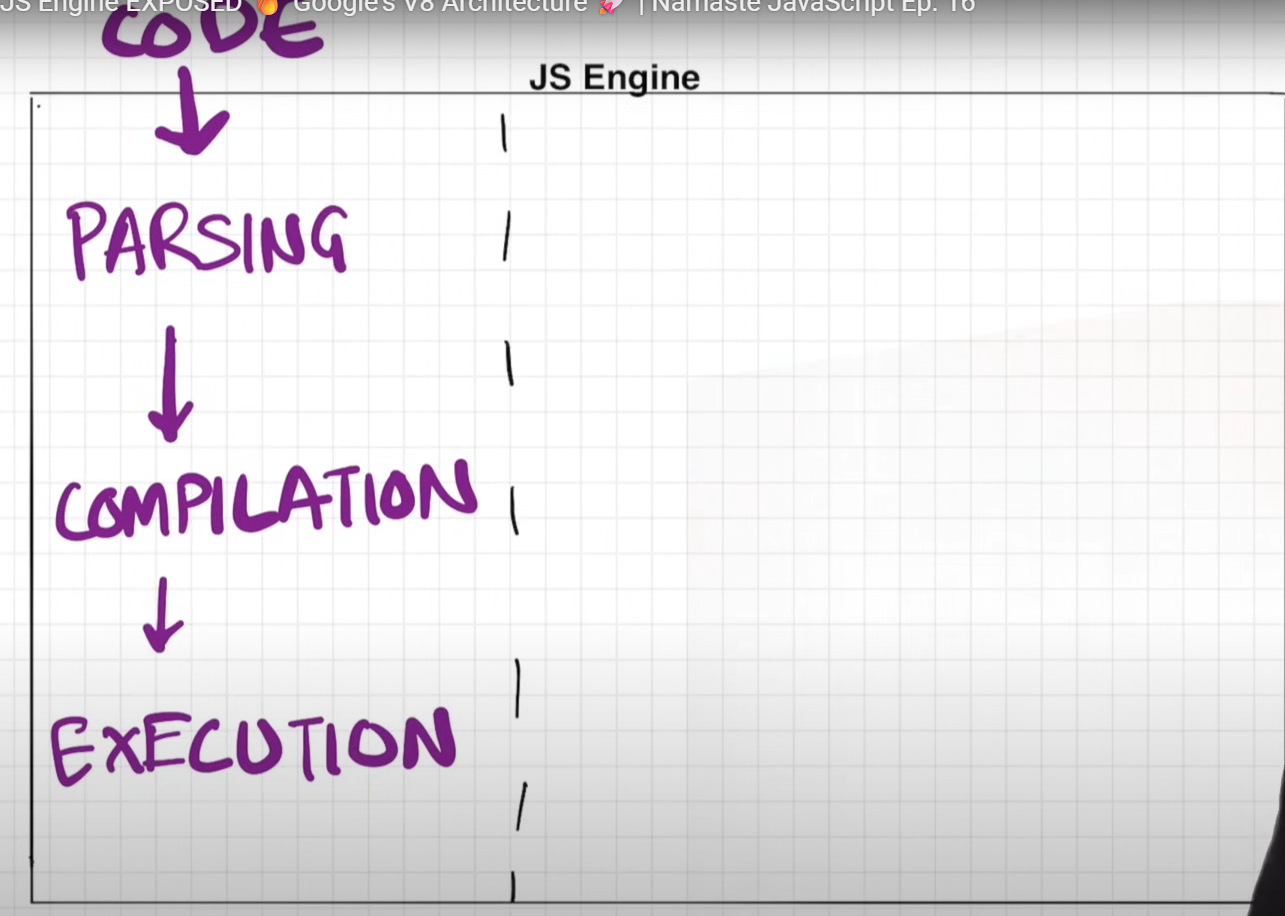 JS Engine EXPOSED 🔥 Google's V8 Architecture 🚀 | Namaste JavaScript Ep. 16
CODE
JS Engine
PARSING
COMPILATION
EXECUTION